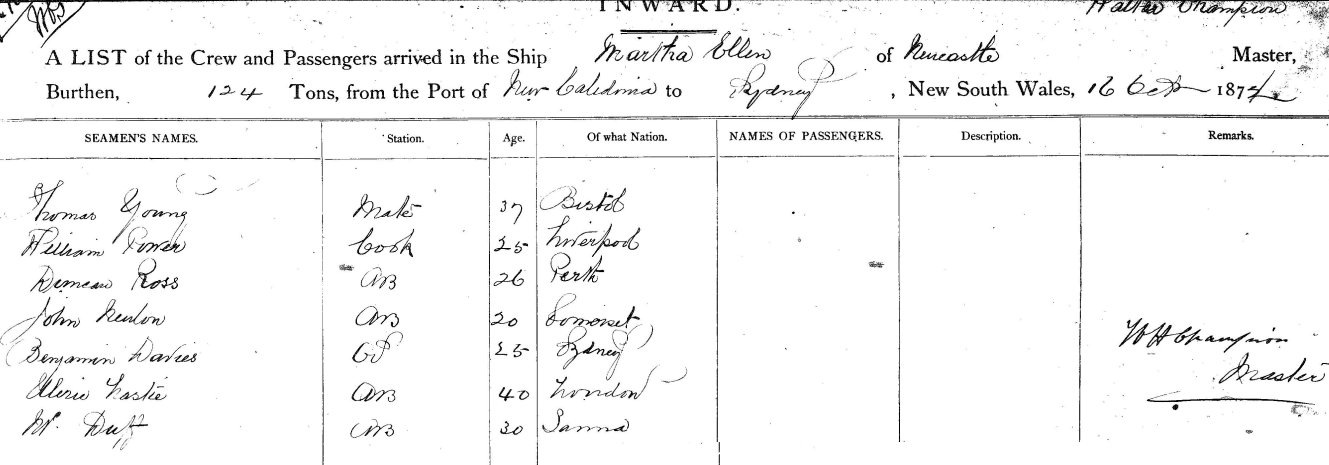 INWARD.
Walter Champion
A LIST of the Crew and Passengers arrived in the Ship Martha Ellen of Newcastle Master,
Burthen, 124 Tons, from the Port of New Caledonia to Sydney, New South Wales, 16 Octr 1874
SEAMEN'S NAMES. Station. Age. Of what Nation. NAMES OF PASSENGERS. Description. Remarks.
Thomas Young Mate 37 Bristol
William Power Cook 25 Liverpool
Duncan Ross AB 26 Perth
John AB 20 Somerset
Benjamin Davies 25 Sydney
WHChampion
Master
Hastie AB 40 London
Duff AB 30 Tanna